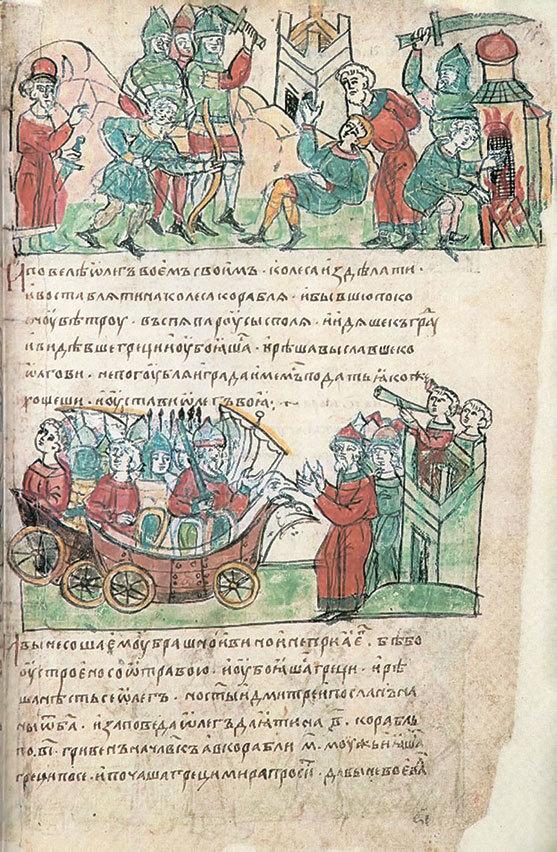 И повелѣ ѡлегъ воемъ своимъ · колеса издѣлати ·
и воставляти на колеса корабля · и бывшю поко
сноу вѣтроу · въспѧ пароусы с поля · и идяше къ граⷣу
и видѣвше греци и оубоꙗшаⷭ · и рѣша выславше ко
ѡлгови · не погоублѧи града имемъ подать ꙗкоже
хощеши · и оустави ѡлегъ воꙗ ·
И вынесоша емоу брашно и вино и не приꙗ еⷢ · бѣ бо
оустроено со ѡтравою · и оубоꙗшаⷭ греци · и рѣ
ша нѣсть се ѡлегъ · но стыи дмитреи посланъ на
ны ѿ ба · и заповеда ѡлегъ даꙗти на ҂в҃ · корабль
по · в҃і · гривенъ на чаловѣкъ а в корабли · м҃ · моужь и ꙗшаⷭ
греци по се · и почаша греци мира просиⷮ · дабы не воеваⷧ